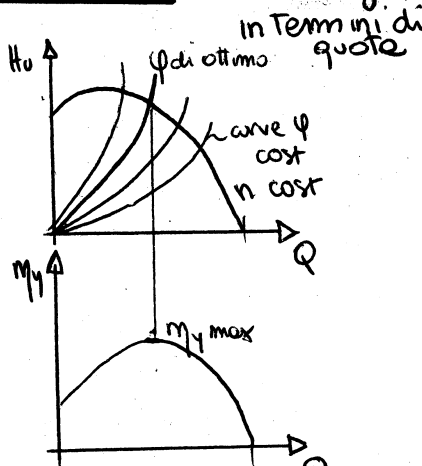 in Termini di
quota
Hu
φ di ottimo
curve φ
cost
n cost
Q
ηy
ηy max
Q